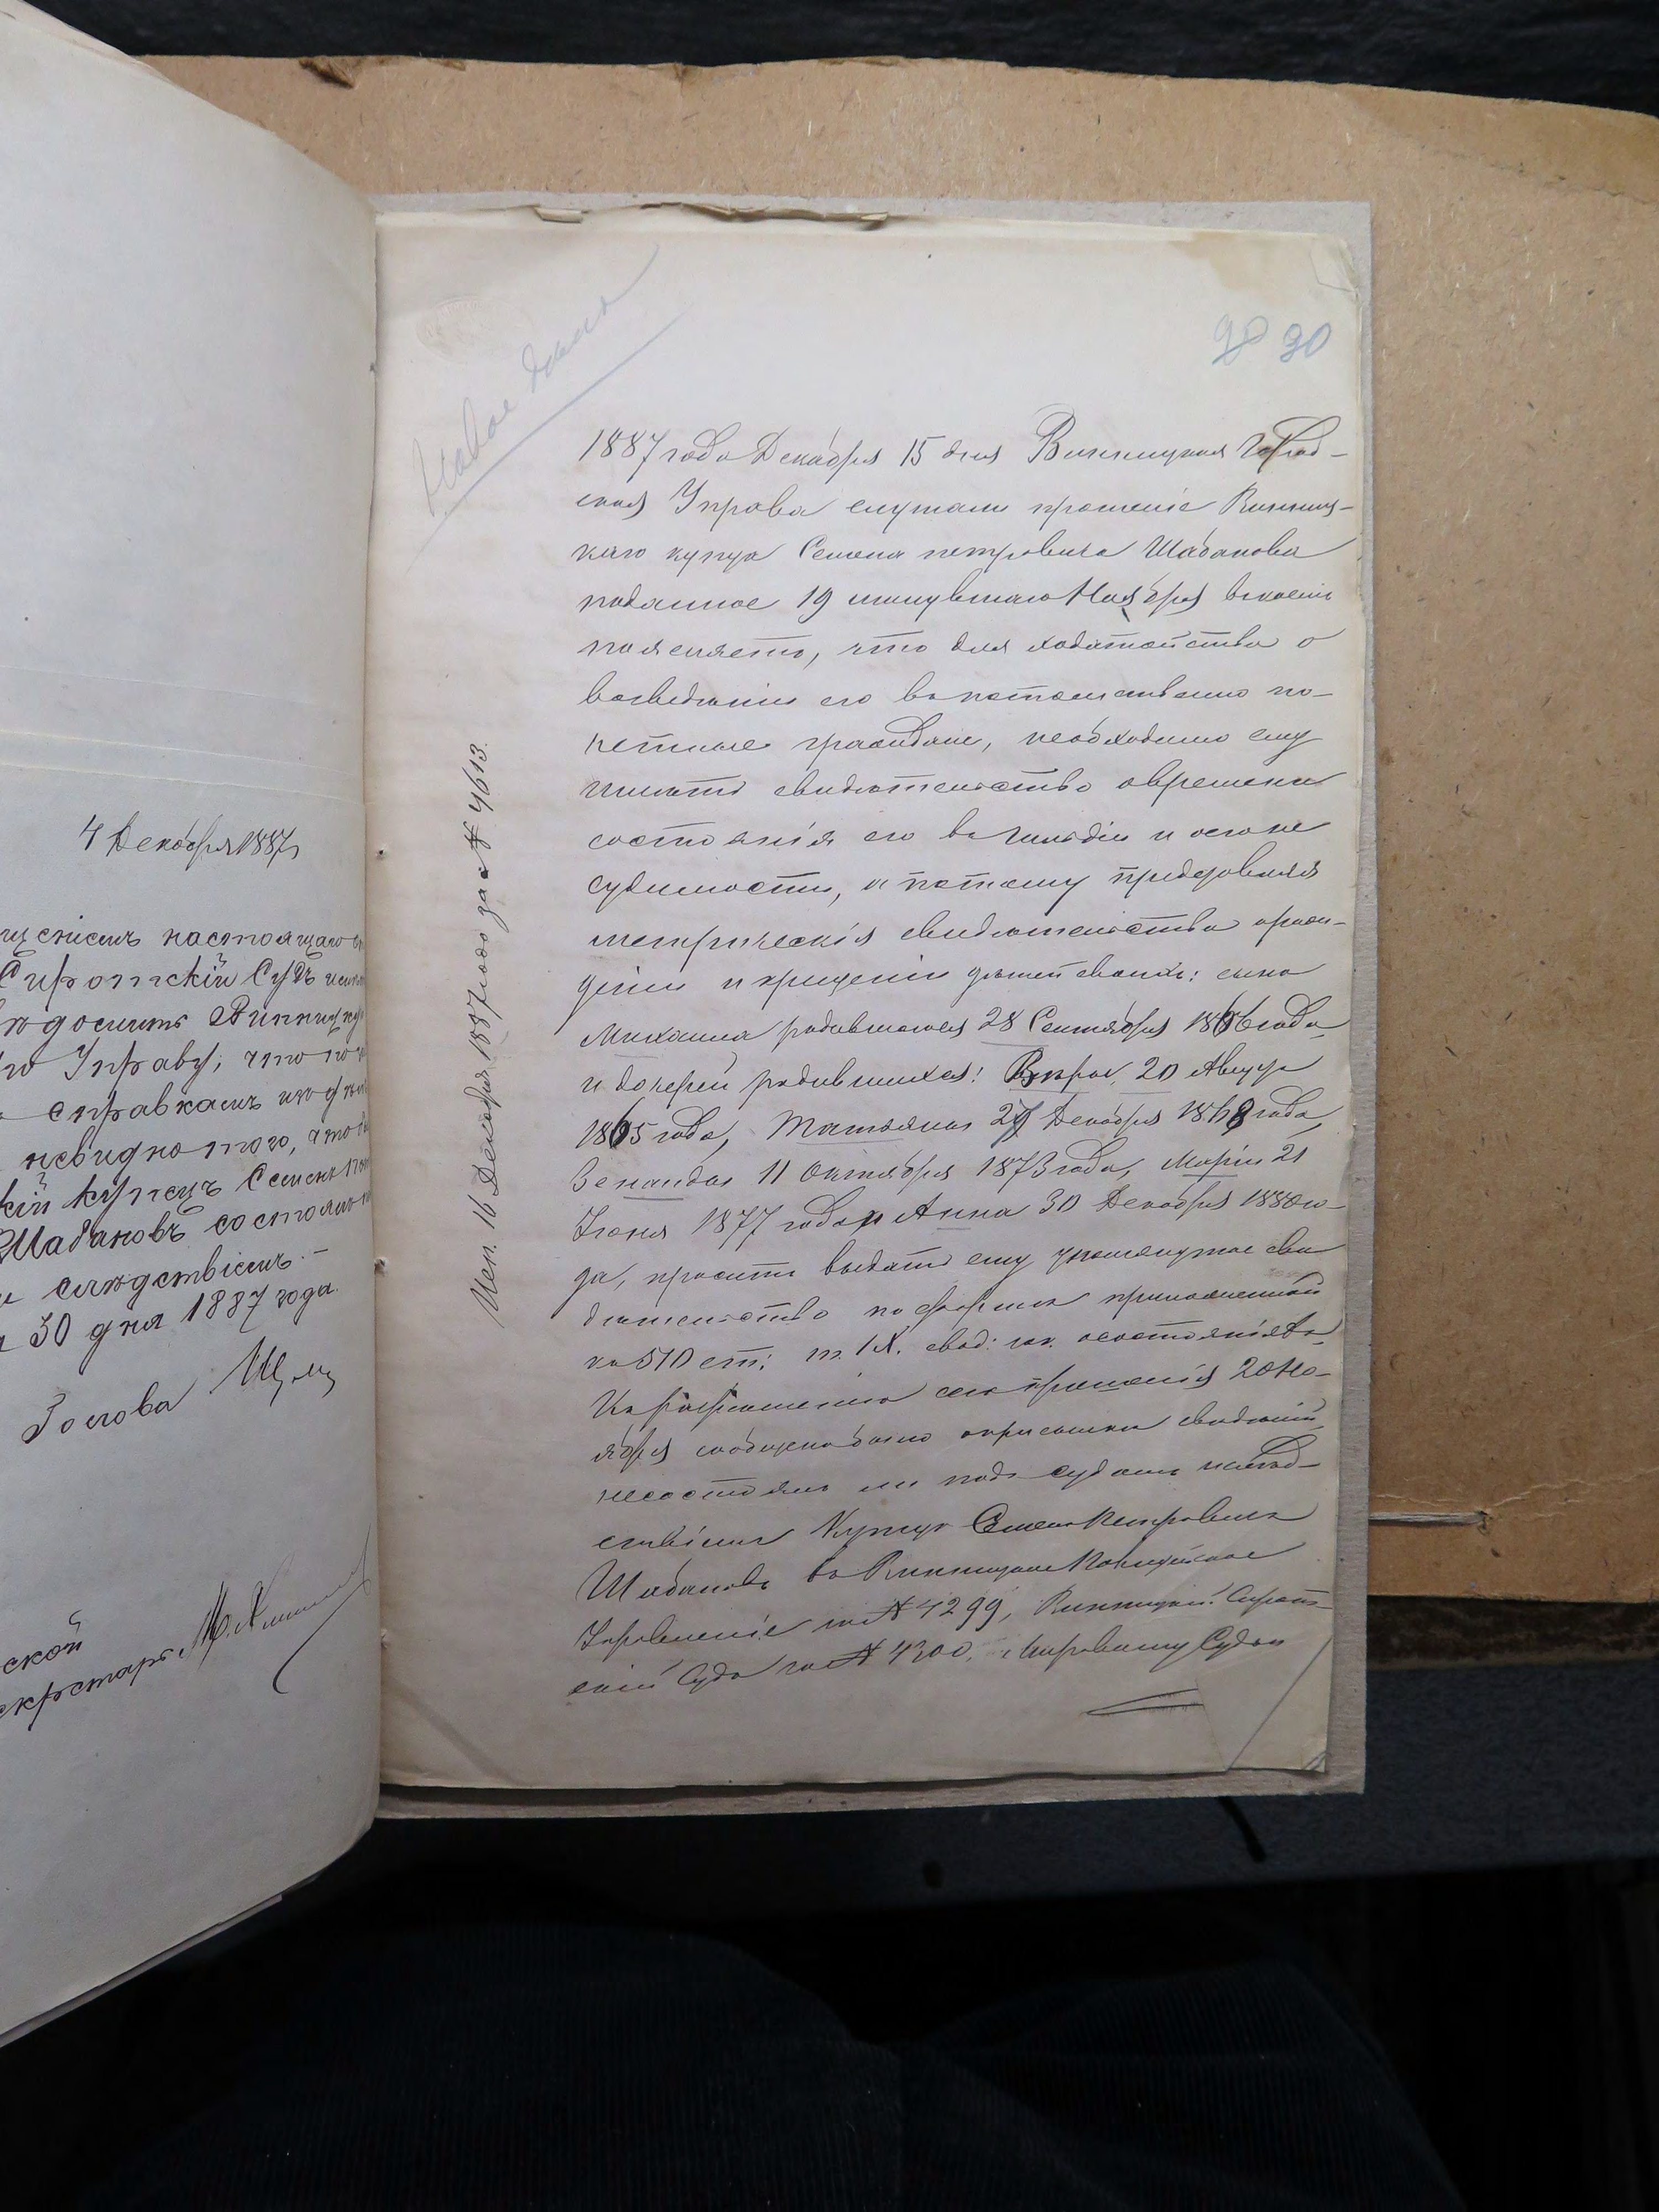 4 Декабря 1887 г
настоящаго
Сиротскій Судъ
Винниц
Управу, что по
справкамъ
невидно того, чтоб
кій купецъ Семенъ
Шабановъ состоялъ
слѣдствіемъ. –
30 дня 1887 года.
Голова
ской
Новое дѣло
90
1887 года Декабря 15 дня Винницкая Город-
ская Управа слушали прошеніе Винниц-
каго купца Семена петровича Шабанова
поданное 19 минувшаго Ноября въ коемъ
поясняетъ, что для ходатайства о
возведеніи его въ потомственно по-
четные граждане, необходимо ему
имѣть свидѣтельство о времени
состоянія его въ гильдіи и о его не
судимости, а потому предъявляя
метрическія свидѣтельства о рож-
деніи и крещеніи дѣтей своихъ: сына
Михаила родившагося 28 Сентября 1866 года
и дочерей родившихся: Вѣра, 20 Августа
1865 года, Татьяна 27 Декабря 1868 года,
Зенаида 11 Октября 1873 года, Марія 21
Іюня 1877 года и Анна 30 Декабря 1880 го-
да, проситъ выдать ему упомянутое сви
дѣтельство по формѣ приложенной
къ 510 ст: т. IX. свод: зак. о состояніяхъ
Къ разрѣшенію сего прошенія 20 Но-
ября сообщено было о присылкѣ свѣденій
несостоялъ ли подъ судомъ и слѣд-
ствіемъ Купецъ Семенъ Петровичъ
Шабановъ въ Винницкое Полицейское
Управленіе за № 4299, Винницкій Сирот-
скій Судъ за № 4300, Мировому Судьи
Исп. 16 Декабря 1887 года за № 4613.